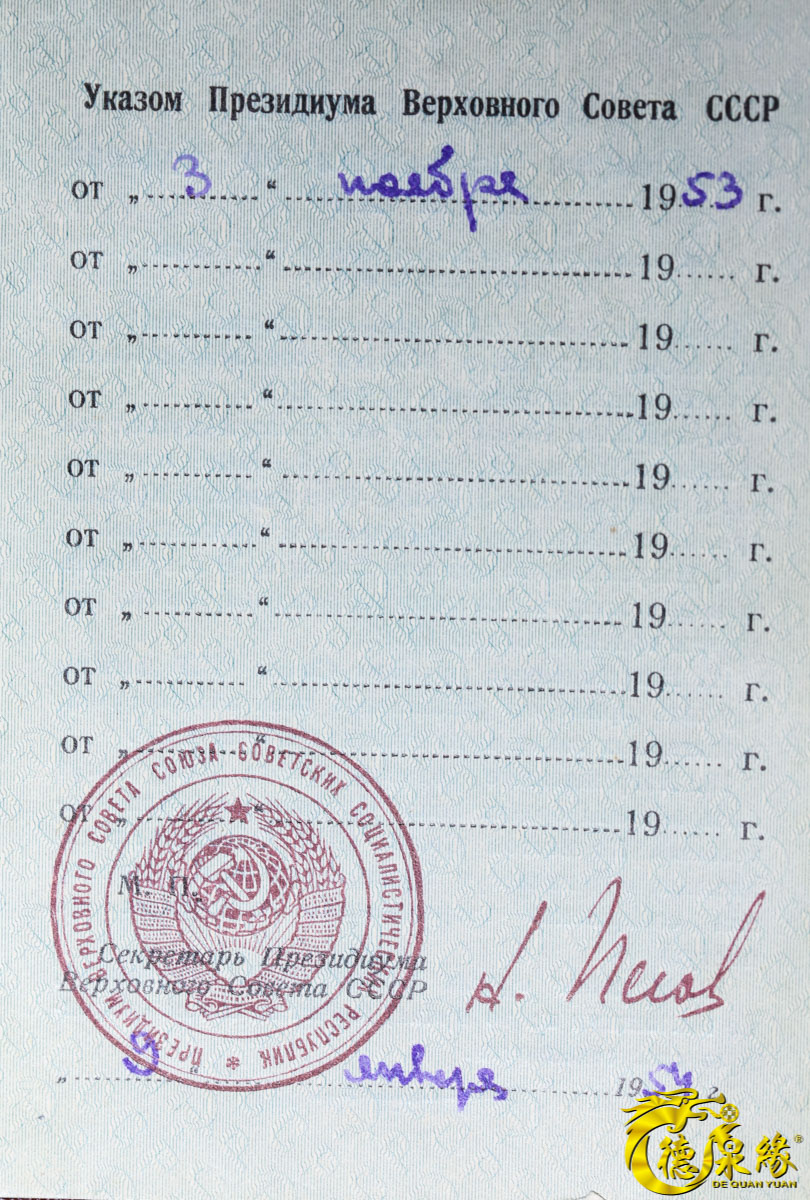 Указом Президиума Верховного Совета СССР
от „ 3 “ ноября 1953 г.
от „ ........ “ ........ 19...... г.
от „ ........ “ ........ 19...... г.
от „ ........ “ ........ 19...... г.
от „ ........ “ ........ 19...... г.
от „ ........ “ ........ 19...... г.
от „ ........ “ ........ 19...... г.
от „ ........ “ ........ 19...... г.
от „ ........ “ ........ 19...... г.
от „ ........ “ ........ 19...... г.
ПРЕЗИДИУМ ВЕРХОВНОГО СОВЕТА СОЮЗА СОВЕТСКИХ СОЦИАЛИСТИЧЕСКИХ РЕСПУБЛИК *
М. П.
Секретарь Президиума
Верховного Совета СССР
Н. Пегов
„ 9 “ января 1954 г.
德泉緣®
DE QUAN YUAN